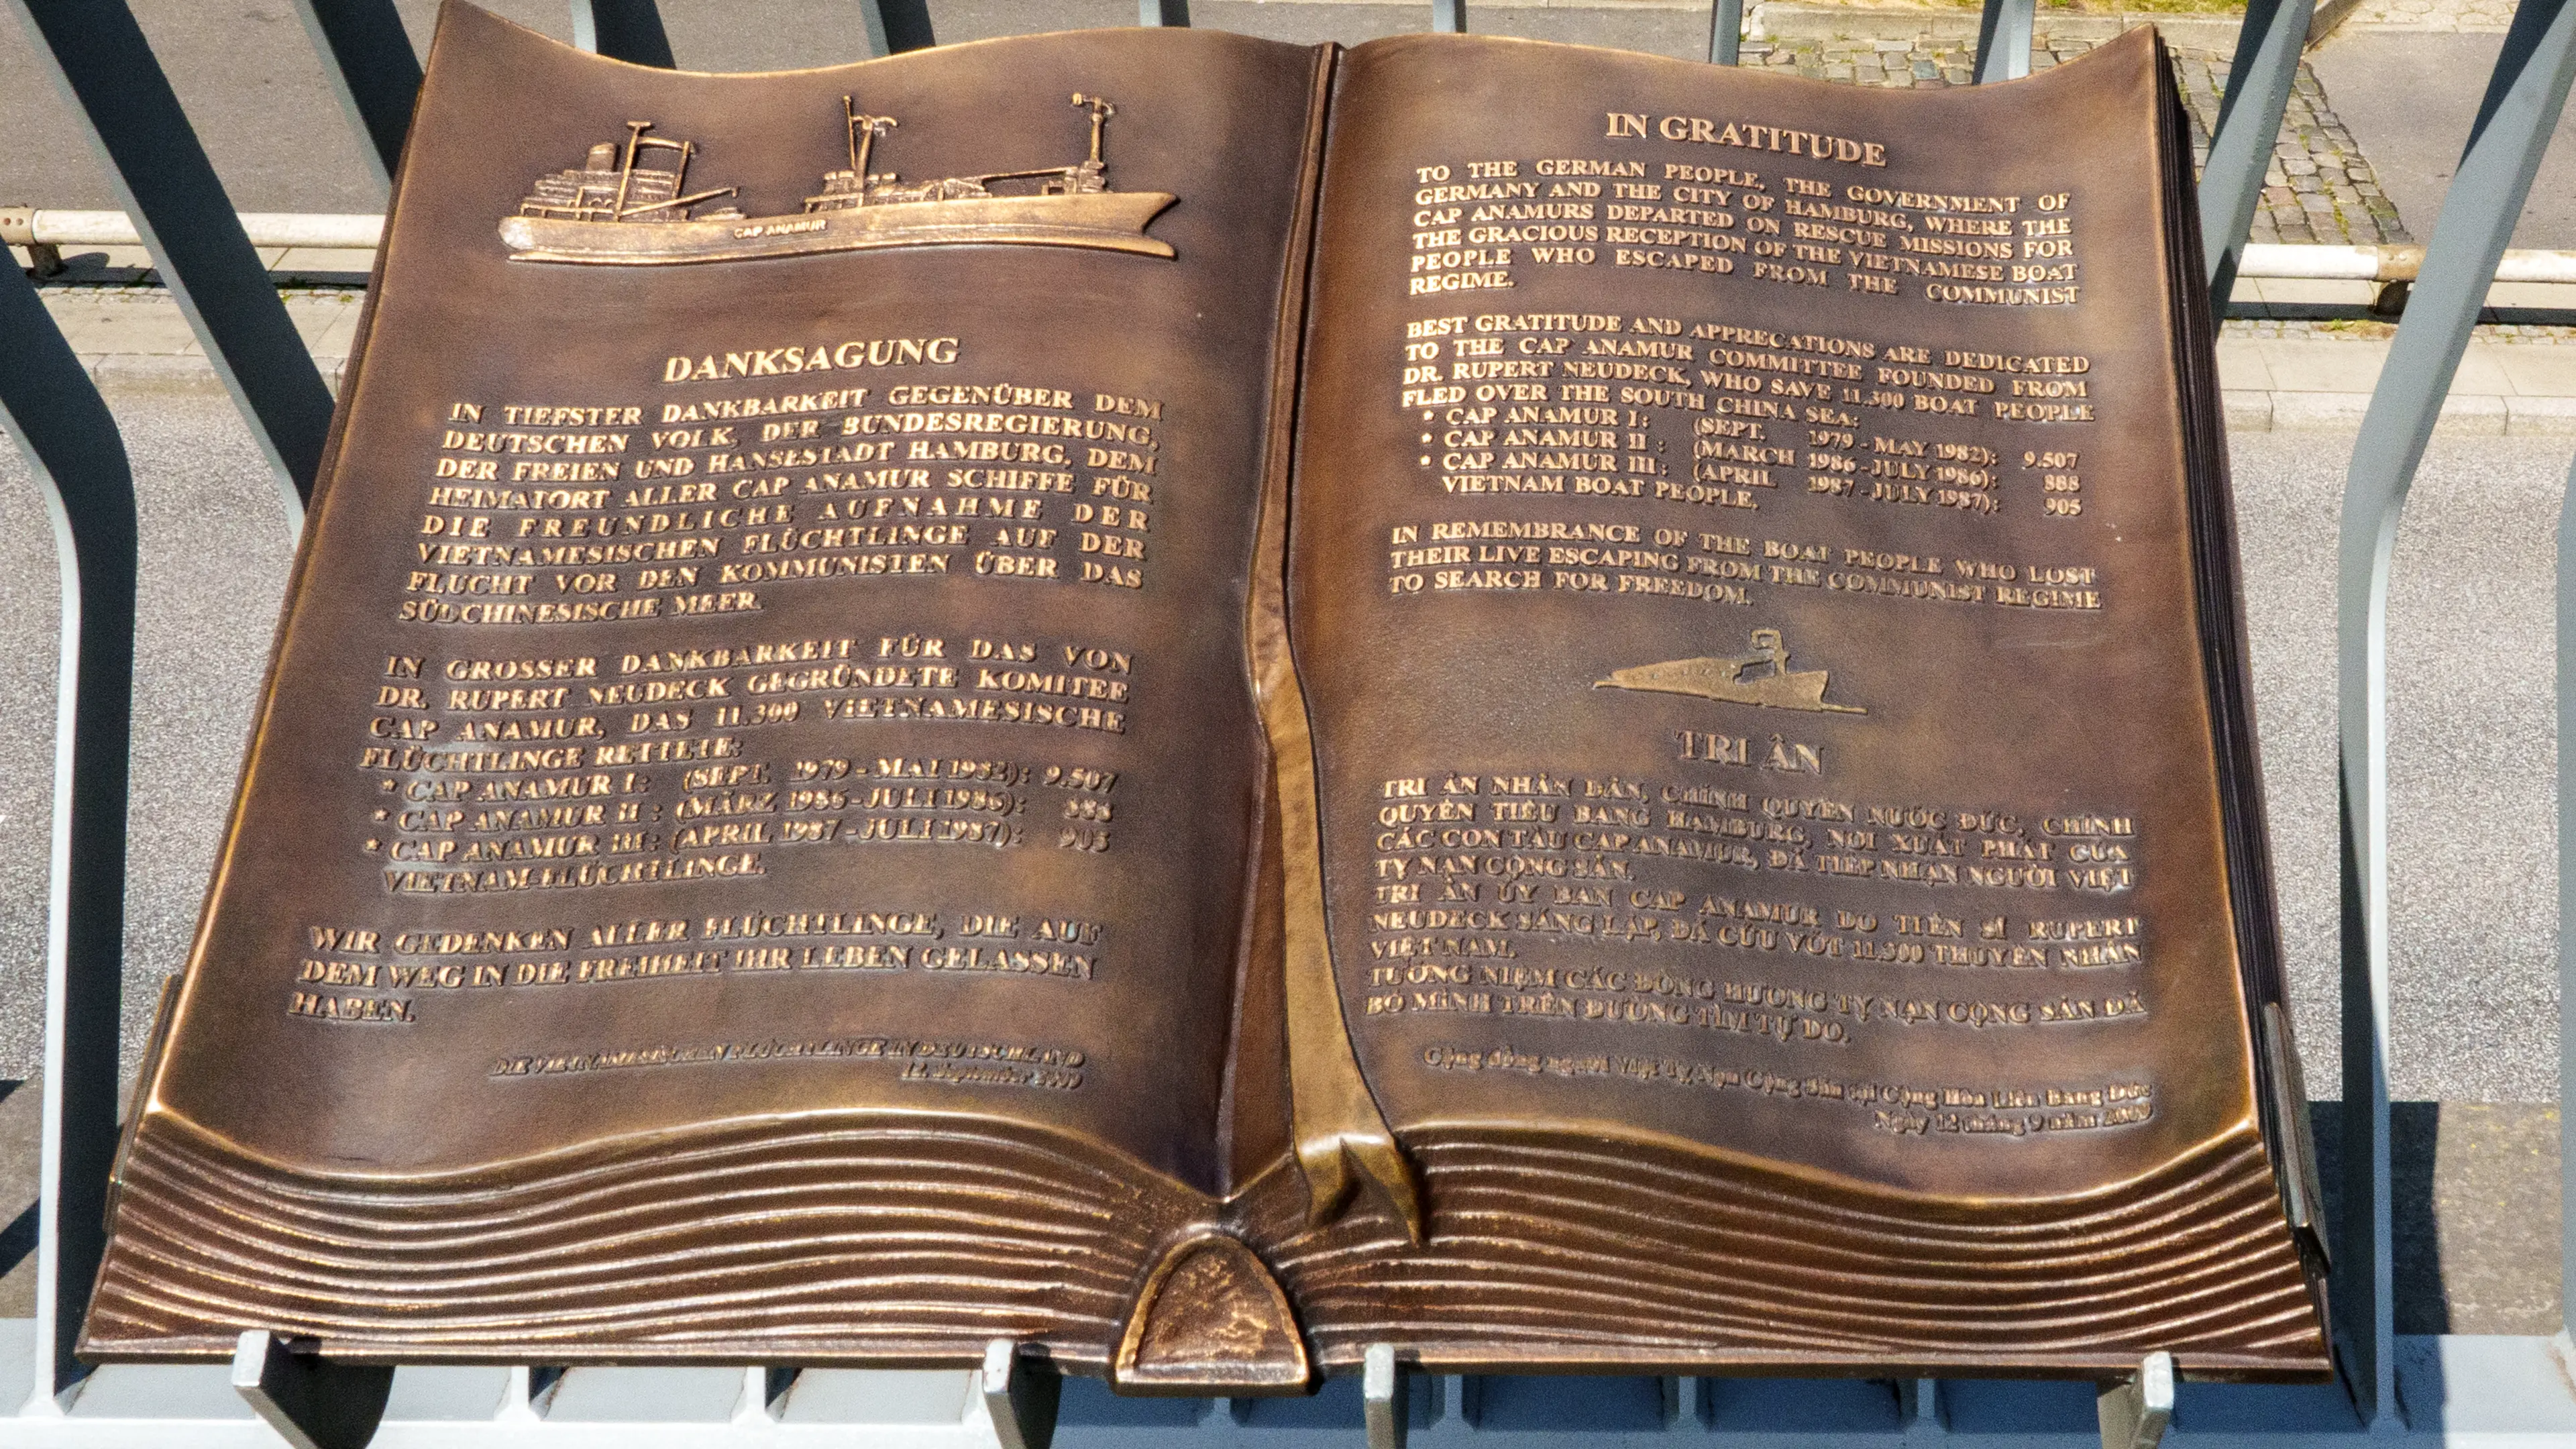 CAP ANAMUR
DANKSAGUNG
IN TIEFSTER DANKBARKEIT GEGENÜBER DEM
DEUTSCHEN VOLK, DER BUNDESREGIERUNG,
DER FREIEN UND HANSESTADT HAMBURG, DEM
HEIMATORT ALLER CAP ANAMUR SCHIFFE FÜR
DIE FREUNDLICHE AUFNAHME DER
VIETNAMESISCHEN FLÜCHTLINGE AUF DER
FLUCHT VOR DEN KOMMUNISTEN ÜBER DAS
SÜDCHINESISCHE MEER.
IN GROSSER DANKBARKEIT FÜR DAS VON
DR. RUPERT NEUDECK GEGRÜNDETE KOMITEE
CAP ANAMUR, DAS 11.300 VIETNAMESISCHE
FLÜCHTLINGE RETTETE:
* CAP ANAMUR I: (SEPT. 1979 - MAI 1982): 9.507
* CAP ANAMUR II : (MÄRZ 1986 - JULI 1986): 888
* CAP ANAMUR III: (APRIL 1987 - JULI 1987): 905
VIETNAM-FLÜCHTLINGE.
WIR GEDENKEN ALLER FLÜCHTLINGE, DIE AUF
DEM WEG IN DIE FREIHEIT IHR LEBEN GELASSEN
HABEN.
DIE VIETNAMESISCHEN FLÜCHTLINGE IN DEUTSCHLAND
12. September 2009
IN GRATITUDE
TO THE GERMAN PEOPLE, THE GOVERNMENT OF
GERMANY AND THE CITY OF HAMBURG, WHERE THE
CAP ANAMURS DEPARTED ON RESCUE MISSIONS FOR
THE GRACIOUS RECEPTION OF THE VIETNAMESE BOAT
PEOPLE WHO ESCAPED FROM THE COMMUNIST
REGIME.
BEST GRATITUDE AND APPRECATIONS ARE DEDICATED
TO THE CAP ANAMUR COMMITTEE FOUNDED FROM
DR. RUPERT NEUDECK, WHO SAVE 11.300 BOAT PEOPLE
FLED OVER THE SOUTH CHINA SEA:
* CAP ANAMUR I: (SEPT. 1979 - MAY 1982): 9.507
* CAP ANAMUR II : (MARCH 1986 - JULY 1986): 888
* CAP ANAMUR III: (APRIL 1987 - JULY 1987): 905
VIETNAM BOAT PEOPLE.
IN REMEMBRANCE OF THE BOAT PEOPLE WHO LOST
THEIR LIVE ESCAPING FROM THE COMMUNIST REGIME
TO SEARCH FOR FREEDOM.
TRI ÂN
TRI ÂN NHÂN DÂN, CHÍNH QUYỀN NƯỚC ĐỨC, CHÍNH
QUYỀN TIỂU BANG HAMBURG, NƠI XUẤT PHÁT CỦA
CÁC CON TÀU CAP ANAMUR, ĐÃ TIẾP NHẬN NGƯỜI VIỆT
TỴ NẠN CỘNG SẢN.
TRI ÂN ỦY BAN CAP ANAMUR DO TIẾN SĨ RUPERT
NEUDECK SÁNG LẬP, ĐÃ CỨU VỚT 11.300 THUYỀN NHÂN
VIỆT NAM.
TƯỞNG NIỆM CÁC ĐỒNG HƯƠNG TỴ NẠN CỘNG SẢN ĐÃ
BỎ MÌNH TRÊN ĐƯỜNG TÌM TỰ DO.
Cộng đồng người Việt Tỵ Nạn Cộng Sản tại Cộng Hòa Liên Bang Đức
Ngày 12 tháng 9 năm 2009